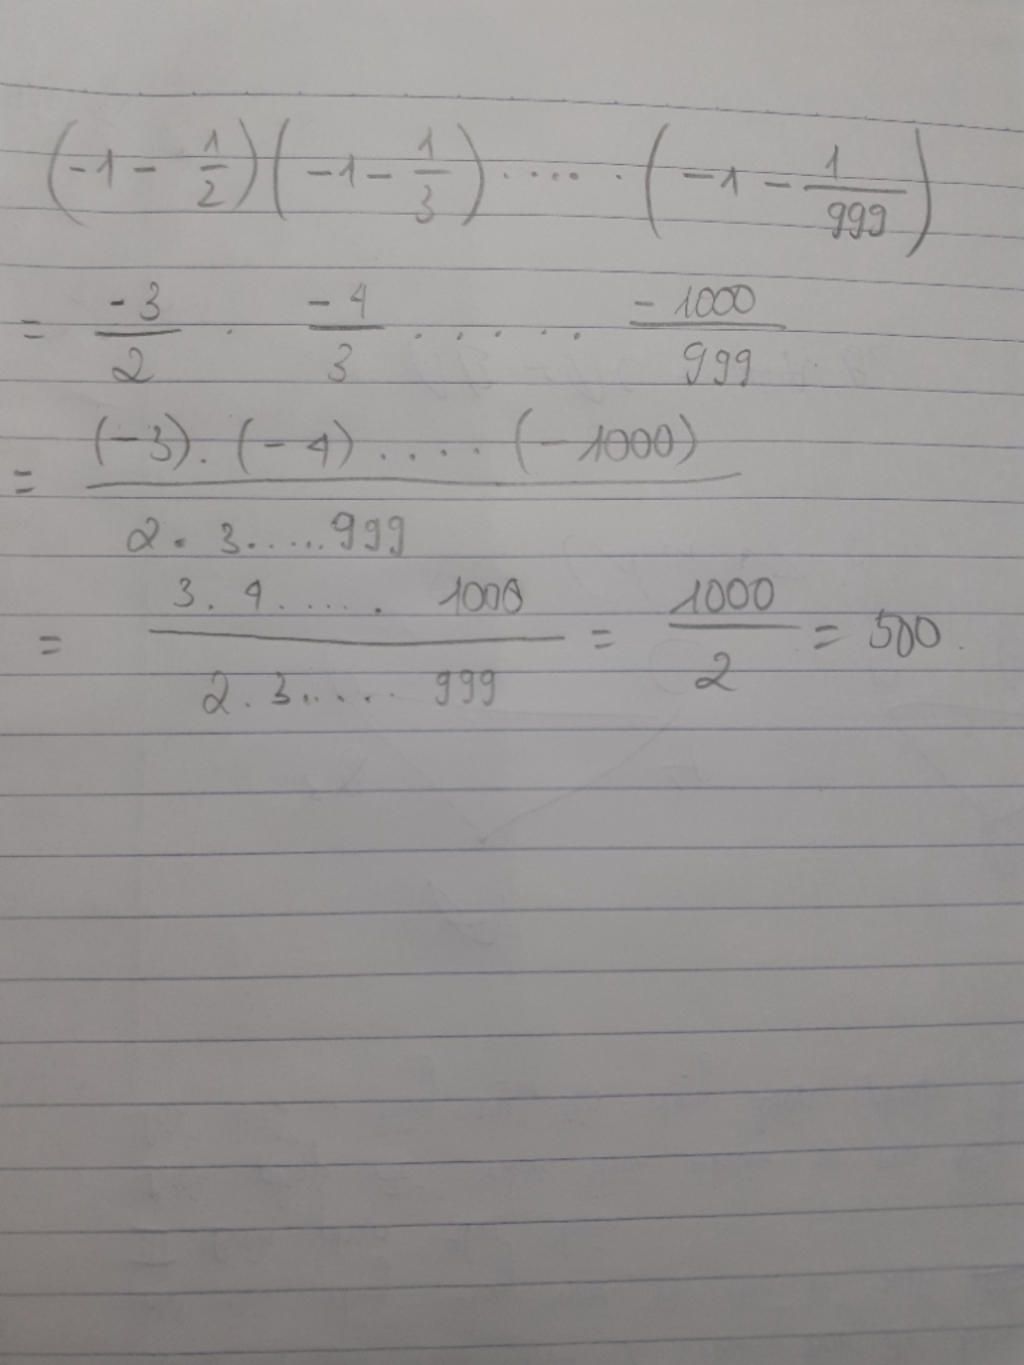 (-1 - 1/2)(-1 - 1/3) ..... . (-1 - 1/999)
= -3/2 . -4/3 . . . . . . -1000/999
= (-3) . (-4) . . . . (-1000) / 2 . 3 ..... 999
= 3 . 4 ..... . 1000 / 2 . 3 ..... 999 = 1000/2 = 500.